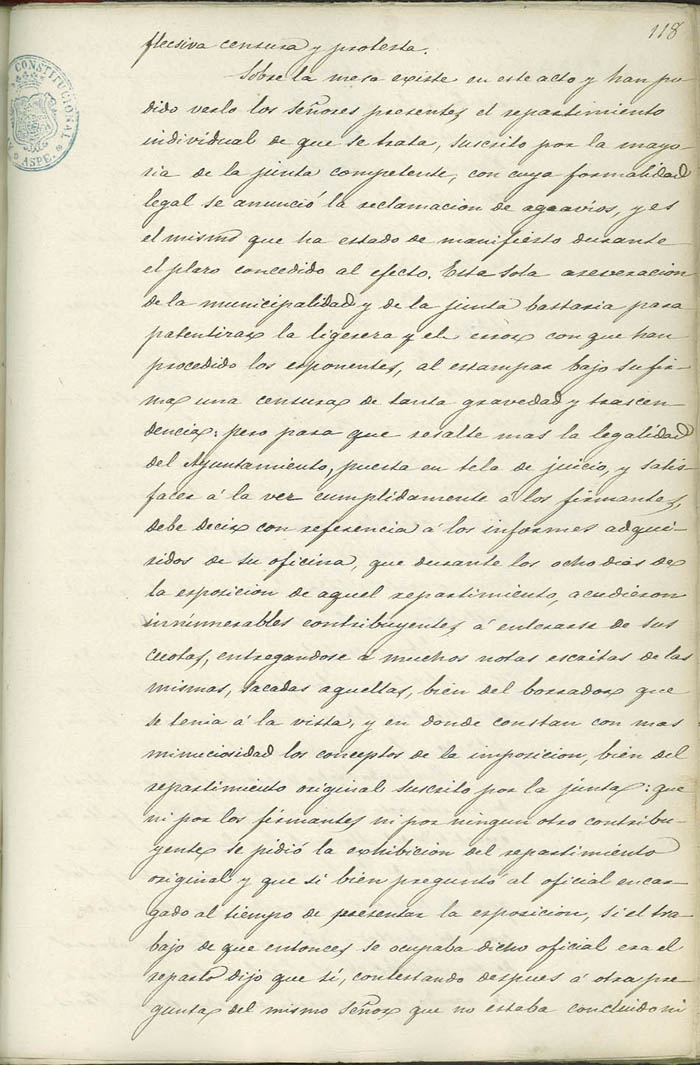 118
CONSTITUCIONAL
ASPE.
flecsiva censura y protesta.
Sobre la mesa existe en este acto y han po-
dido verlo los Señores presentes el repartimiento
individual de que se trata, suscrito por la mayo-
ria de la junta competente, con cuya formalidad
legal se anunció la reclamacion de agravios, y es
el mismo que ha estado de manifiesto durante
el plazo concedido al efecto. Esta sola aseveracion
de la municipalidad y de la junta bastaria para
patentizar la ligereza y el error con que han
procedido los esponentes, al estampar bajo su fir-
ma una censura de tanta gravedad y trascen-
dencia: pero para que resalte mas la legalidad
del Ayuntamiento, puesta en tela de juicio, y satis-
facer á la vez cumplidamente á los firmantes,
debe decir con referencia á los informes adqui-
ridos de su oficina, que durante los ocho dias de
la esposicion de aquel repartimiento, acudieron
innumerables contribuyentes á enterarse de sus
cuotas, entregandose á muchos notas escritas de las
mismas, sacadas aquellas, bien del borrador que
se tenia á la vista, y en donde constan con mas
minuciosidad los conceptos de la imposicion, bien del
repartimiento original suscrito por la junta: que
ni por los firmantes ni por ningun otro contribu-
yente se pidió la exhibicion del repartimiento
original y que si bien preguntó al oficial encar-
gado al tiempo de presentar la esposicion, si el tra-
bajo de que entonces se ocupaba dicho oficial era el
reparto dijo que sí, contestando despues á otra pre-
gunta del mismo Señor que no estaba concluido ni